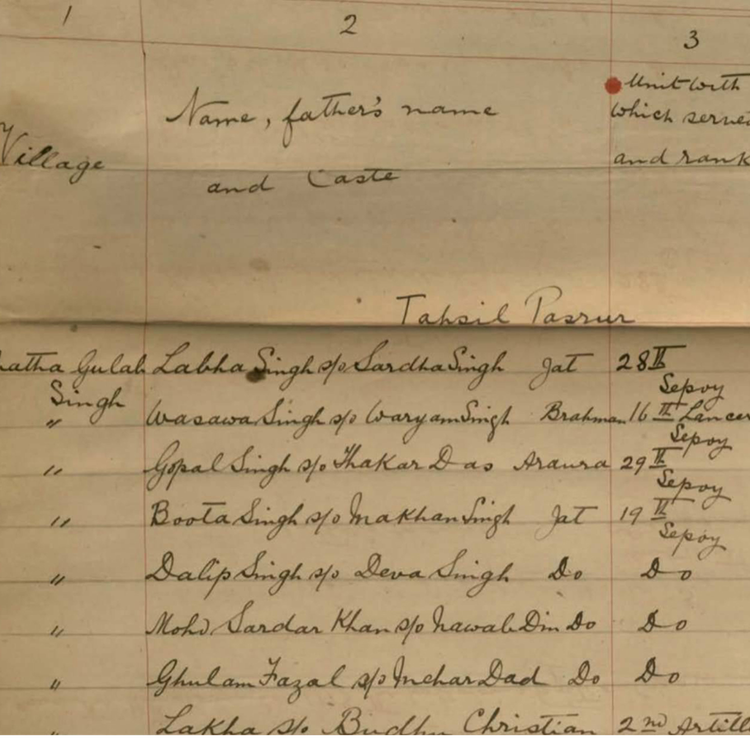 1 2 3
Name, father's name
and Caste
Village
Unit with
which serve
and rank
Tahsil Pasrur
atha Gulab Labha Singh s/o Sardha Singh Jat 28th
Singh Sepoy
" Wasawa Singh s/o Waryam Singh Brahman 16th Lancer
Sepoy
" Gopal Singh s/o Thakar Das Araura 29th
Sepoy
" Boota Singh s/o Makhan Singh Jat 19th
Sepoy
" Dalip Singh s/o Deva Singh Do Do
" Mohd Sardar Khan s/o Nawab Din Do Do
" Ghulam Fazal s/o Mehar Dad Do Do
" Lakha s/o Budhu Christian 2nd Artill